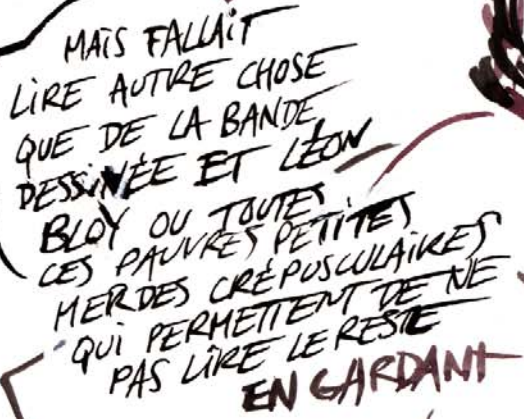 MAIS FALLAIT
LIRE AUTRE CHOSE
QUE DE LA BANDE
DESSINÉE ET LÉON
BLOY OU TOUTES
CES PAUVRES PETITES
MERDES CRÉPUSCULAIRES
QUI PERMETTENT DE NE
PAS LIRE LE RESTE
EN GARDANT